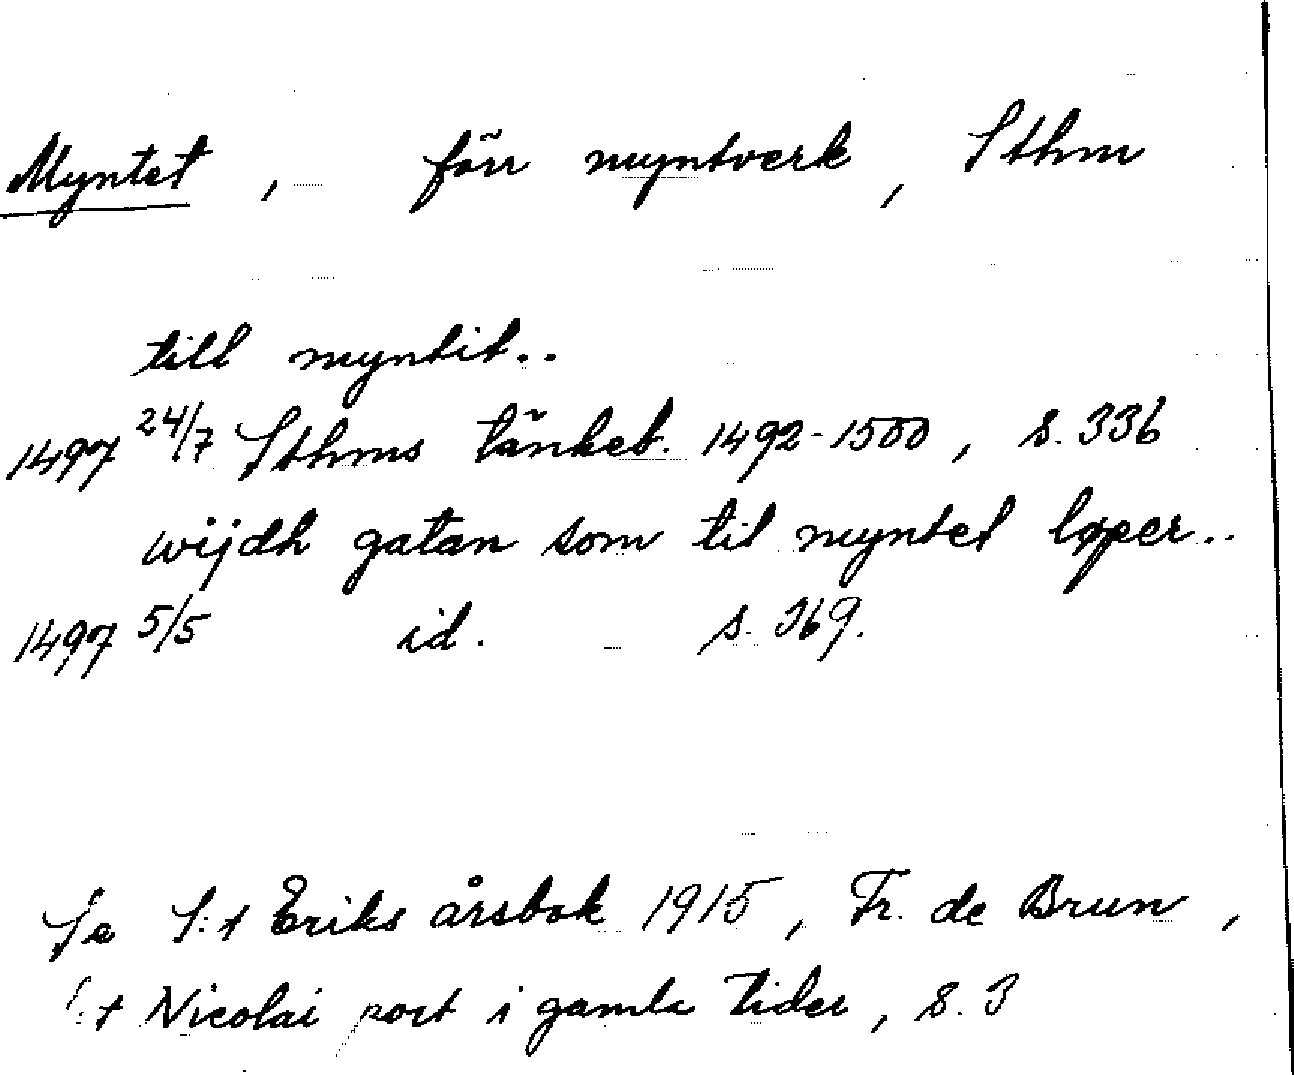 Myntet, förr myntverk, Sthm
till myntit..
1497 24/7 Sthms tänkeb. 1492-1500, s. 336
wijdh gatan som til myntet løper..
1497 5/5 id. s. 369.
Se S:t Eriks årsbok 1915, Fr. de Brun,
S:t Nicolai port i gamla tider, s. 3